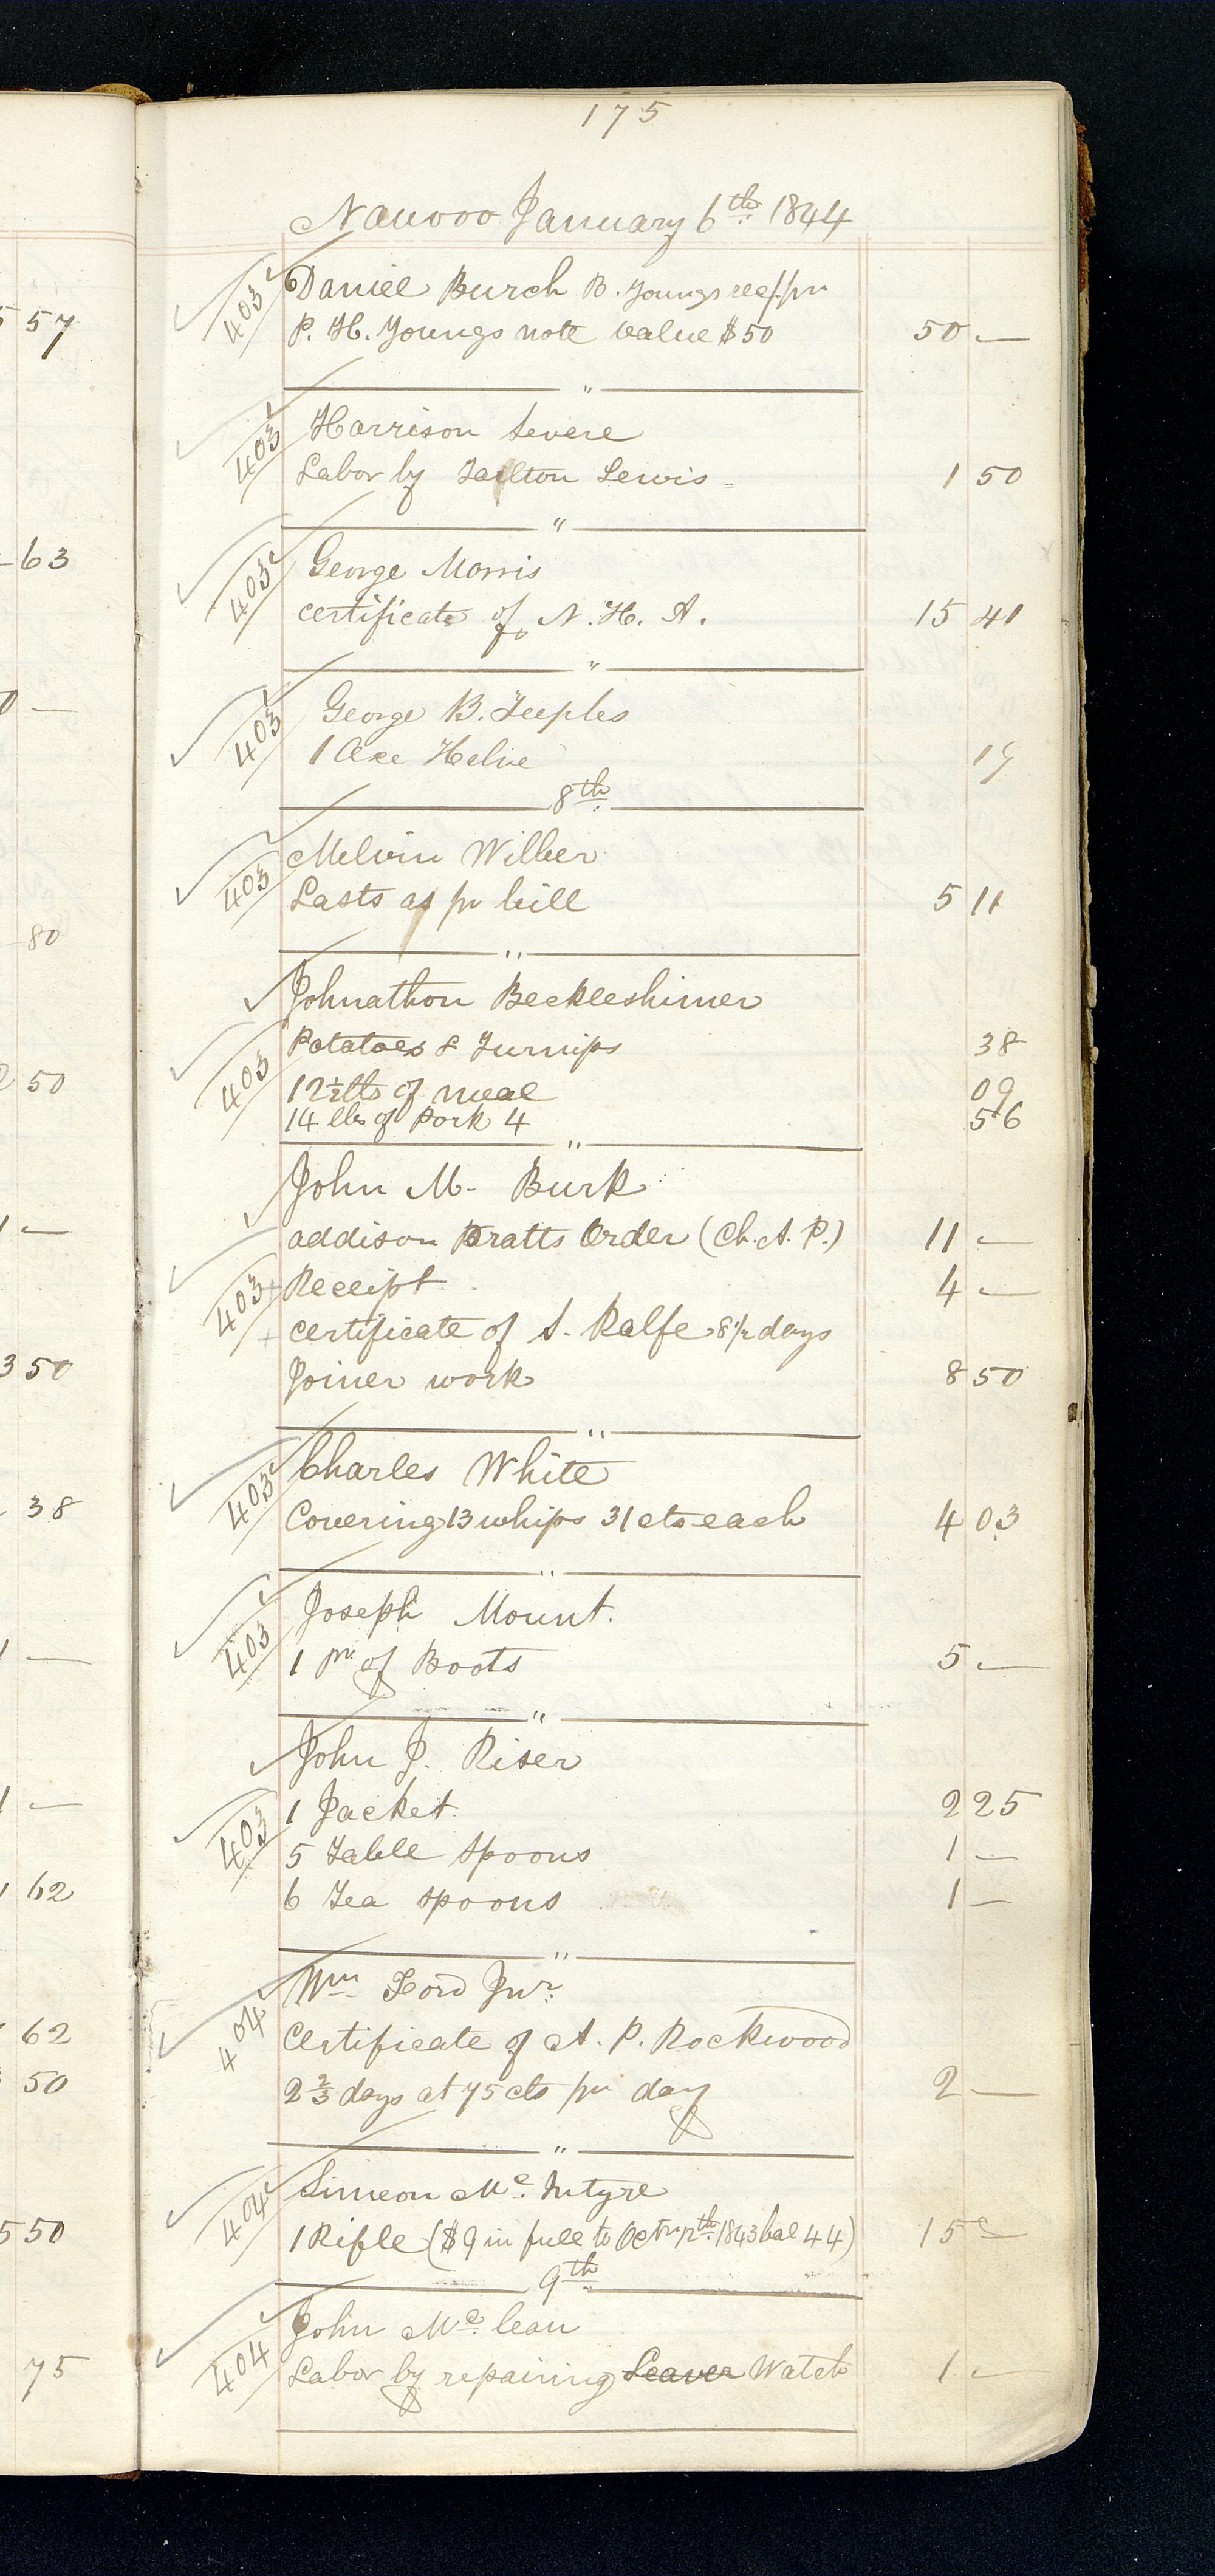 175
Nauvoo January 6th 1844
403 Daniel Burch B. Youngs rect pr
P. H. Youngs note value $50 50 —
"
403 Harrison Severe
Labor by Tarlton Lewis 1 50
"
403 George Morris
certificate of N. H. A. 15 41
fo
"
403 George B. Teeples
1 Axe Helve 19
8th
403 Melvin Wilber
Lasts as pr bill 5 11
"
Johnathon Beckleshimer
Potatoes & Turnips 38
403 12½ lbs of meal 09
14 lbs of Pork 4 56
"
John M. Burk
addison Pratts Order (Ch. A. P.) 11 —
403 Receipt 4 —
certificate of S. Ralfe 8½ days
Joiner work 8 50
"
403 Charles White
Covering 13 whips 31 cts each 4 03
"
403 Joseph Mount.
1 pr of Boots 5 —
"
John J. Riser
403 1 Jacket 2 25
5 Table spoons 1 —
6 Tea spoons 1 —
"
404 Wm Ford Jnr.
Certificate of A. P. Rockwood
2⅔ days at 75 cts pr day 2 —
"
404 Simeon Mc. Intyre
1 Rifle ($9 in full to Octr 12th 1843 bal 44) 15 —
9th
404 John Mc. lean
Labor by repairing Leaver Watch 1 —
5 57
63
—
80
50
—
3 50
38
—
1 —
62
62
50
5 50
75